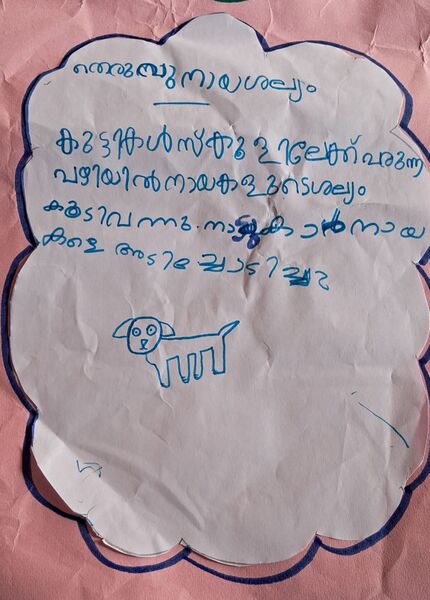 തെരുമ്പുനായശല്യം
കുട്ടികൾസ്കൂളിലേക്ക് വരുന്ന
വഴിയിൽനായകളുടെശല്യം
കൂടിവന്നു. നാട്ടുകാർനായ
കളെ അടിച്ചോടിച്ചു